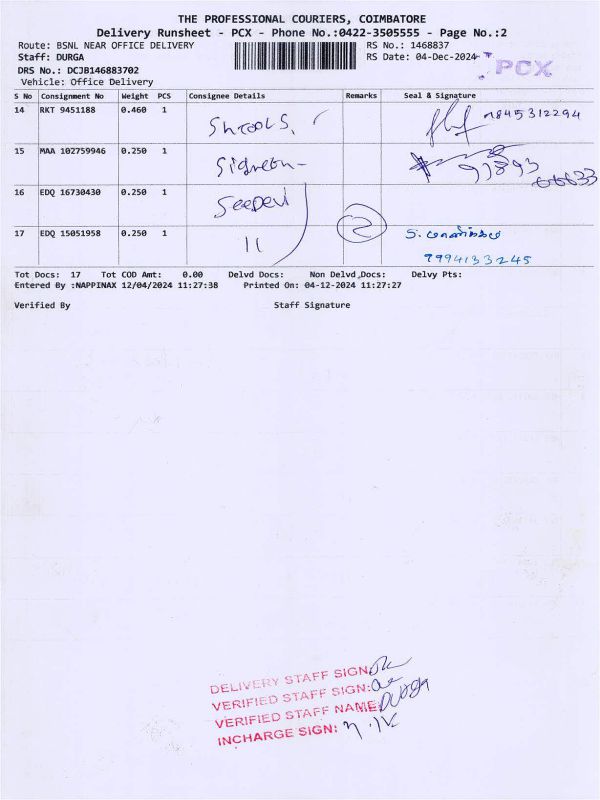 THE PROFESSIONAL COURIERS, COIMBATORE
Delivery Runsheet - PCX - Phone No.:0422-3505555 - Page No.:2
Route: BSNL NEAR OFFICE DELIVERY RS No.: 1468837
Staff: DURGA RS Date: 04-Dec-2024
DRS No.: DCJB146883702 PCX
Vehicle: Office Delivery
S No Consignment No Weight PCS Consignee Details Remarks Seal & Signature
14 RKT 9451188 0.460 1 9845312294
15 MAA 102759946 0.250 1
16 EDQ 16730430 0.250 1 2
17 EDQ 15051958 0.250 1 11
7994133245
Tot Docs: 17 Tot COD Amt: 0.00 Delvd Docs: Non Delvd Docs: Delvy Pts:
Entered By :NAPPINAX 12/04/2024 11:27:38 Printed On: 04-12-2024 11:27:27
Verified By Staff Signature
DELIVERY STAFF SIGN:
VERIFIED STAFF SIGN:
VERIFIED STAFF NAME: Durga
INCHARGE SIGN: